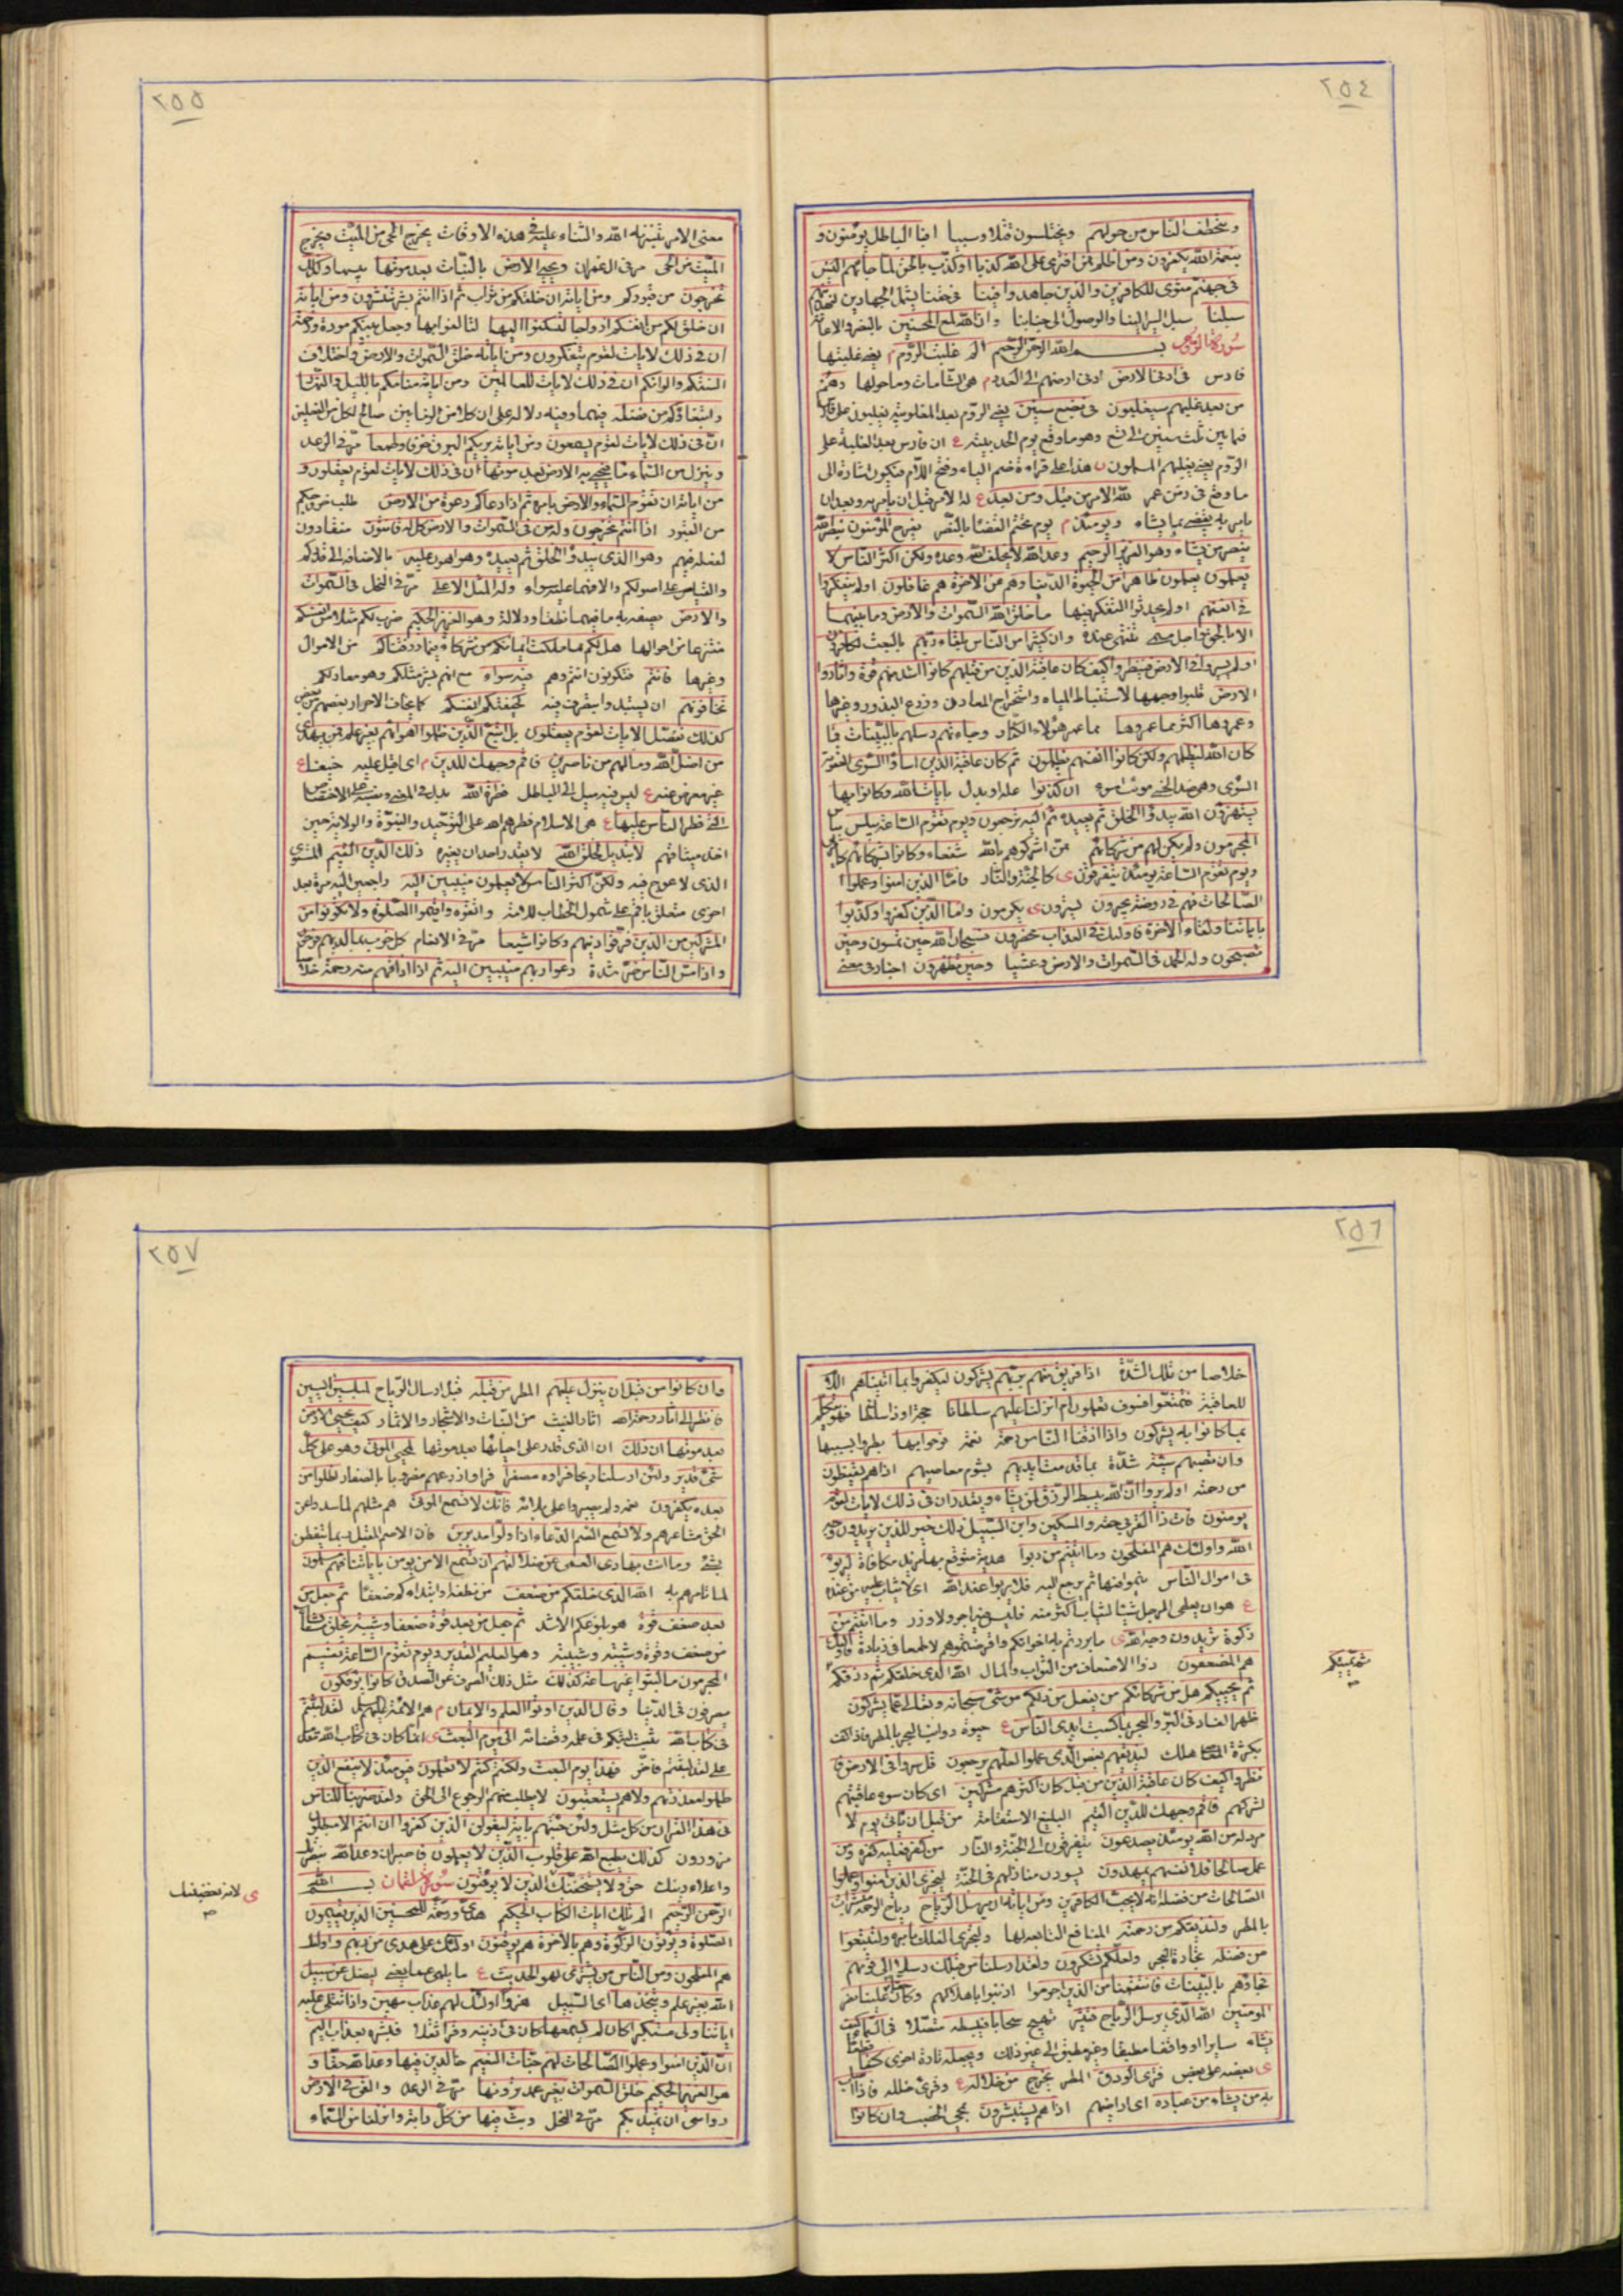 ٢٥٤
ويتخطف الناس من حولهم ويختلسون قتلا وسبيا افبا لباطل يؤمنون و
بنعمة الله يكفرون ومن اظلم ممن افترى على الله كذبا او كذب بالحق لما جاءهم اليس
فى جهنم مثوى للكافرين والذين جاهدوا فينا فى حقنا يشمل الجهادين لنهدينهم
سبلنا سبل السير الينا والوصول الى جنابنا وان الله لمع المحسنين بالنصر والاعانة
سورة الروم بسم الله الرحمن الرحيم الم غلبت الروم م يعنى غلبتها
فارس فى ادنى الارض ادنى ارضهم الى العدو م هى الشامات وما حولها وهم
من بعد غلبهم سيغلبون فى بضع سنين يعنى الروم بعد المغلوبية يغلبون على فارس
فما بين ثلث سنين الى تسع وهو ما وقع يوم الحديبية ع ان فارس بعد الغلبة على
الروم يعنى يغلبهم المسلمون ن هذا على قراءة ضم الياء وفتح اللام فيكون اشارة الى
ما وقع فى زمن عمر لله الامر من قبل ومن بعد ع له الامر قبل ان يامر به وبعد ان
يامر به يقضى بما يشاء ويومئذ م يوم يختم القضاء بالنصر يفرح المؤمنون بنصر الله
ينصر من يشاء وهو العزيز الرحيم وعد الله لا يخلف الله وعده ولكن اكثر الناس لا
يعلمون يعلمون ظاهرا من الحيوة الدنيا وهم عن الاخرة هم غافلون اولم يتفكروا
فى انفسهم اولم يحدثوا التفكر فيها ما خلق الله السموات والارض وما بينهما
الا بالحق واجل مسمى تنتهى عنده وان كثيرا من الناس بلقاء ربهم بالبعث لكافرون
اولم يسيروا فى الارض فينظروا كيف كان عاقبة الذين من قبلهم كانوا اشد منهم قوة واثاروا
الارض قلبوا وجهها لاستنباط المياه واستخراج المعادن وزرع البذور وغيرها
وعمروها اكثر مما عمروها مما عمر هؤلاء الكفار وجاءتهم رسلهم بالبينات فما
كان الله ليظلمهم ولكن كانوا انفسهم يظلمون ثم كان عاقبة الذين اساؤا السوى العقوبة
السوى وهى ضد الحسنى مونث اسوء ان كذبوا علة او بدل بايات الله وكانوا بها
يستهزؤن الله يبدؤا الخلق ثم يعيده ثم اليه ترجعون ويوم تقوم الساعة يبلس يياس
المجرمون ولم يكن لهم من شركائهم ممن اشركوهم بالله شفعاء وكانوا بشركائهم كافرين
ويوم تقوم الساعة يومئذ يتفرقون ى كالجنة والنار فاما الذين امنوا وعملوا
الصالحات فهم فى روضة يحبرون يسرون ى يكرمون واما الذين كفروا وكذبوا
باياتنا ولقاء الاخرة فاولئك فى العذاب محضرون فسبحان الله حين تمسون وحين
تصبحون وله الحمد فى السموات والارض وعشيا وحين تظهرون اخبار فى معنى
٢٥٥
معنى الامر بتنزيه الله والثناء عليه فى هذه الاوقات يخرج الحى من الميت ويخرج
الميت من الحى مر فى ال عمران ويحيى الارض بالنبات بعد موتها يبسها وكذلك
تخرجون من قبوركم ومن اياته ان خلقكم من تراب ثم اذا انتم بشر تنتشرون ومن اياته
ان خلق لكم من انفسكم ازواجا لتسكنوا اليها لتالفوا بها وجعل بينكم مودة ورحمة
ان فى ذلك لايات لقوم يتفكرون ومن اياته خلق السموات والارض واختلاف
السنتكم والوانكم ان فى ذلك لايات للعالمين ومن اياته منامكم بالليل والنهار
وابتغاؤكم من فضله فيهما وفيه دلالة على ان كلا من الزمانين صالح لكل من الفعلين
ان فى ذلك لايات لقوم يسمعون ومن اياته يريكم البرق خوفا وطمعا مر فى الرعد
وينزل من السماء ماء فيحيى به الارض بعد موتها ان فى ذلك لايات لقوم يعقلون و
من اياته ان تقوم السماء والارض بامره ثم اذا دعاكم دعوة من الارض طلب خروجكم
من القبور اذا انتم تخرجون وله من فى السموات والارض كل له قانتون منقادون
لفعله فيهم وهو الذى يبدؤا الخلق ثم يعيده وهو اهون عليه بالاضافة الى قدركم
والقياس على اصولكم والا فهما عليه سواء وله المثل الاعلى مر فى النحل فى السموات
والارض يصفه به ما فيهما نطقا ودلالة وهو العزيز الحكيم ضرب لكم مثلا من انفسكم
منتزعا من احوالها هل لكم مما ملكت ايمانكم من شركاء فيما رزقناكم من الاموال
وغيرها فانتم فتكونون انتم وهم فيه سواء مع انهم بشر مثلكم وهو معار لكم
تخافونهم ان يستبدوا بتصرف فيه كخيفتكم انفسكم كما يخاف الاحرار بعضهم من بعض
كذلك نفصل الايات لقوم يعقلون بل اتبع الذين ظلموا اهوائهم بغير علم فمن يهدى
من اضل الله وما لهم من ناصرين فاقم وجهك للدين م اى اقبل عليه حنيفا ع
غير معرض عنه ع ليس فيه ميل الى الباطل فطرة الله
التى فطر الناس عليها ع هى الاسلام فطرهم الله على التوحيد والنبوة والولاية حين
اخذ ميثاقهم لا تبديل لخلق الله لا يقدر احد ان يغيره ذلك الدين القيم المستوى
الذى لا عوج فيه ولكن اكثر الناس لا يعلمون منيبين اليه راجعين اليه مرة بعد
اخرى متعلق باقم على شمول الخطاب للامة واتقوه واقيموا الصلوة ولا تكونوا من
المشركين من الذين فرقوا دينهم وكانوا شيعا مر فى الانعام كل حزب بما لديهم فرحون
واذا مس الناس ضر شدة دعوا ربهم منيبين اليه ثم اذا اذاقهم منه رحمة خلاصا
٢٥٦
خلاصا من تلك الشدة اذا فريق منهم بربهم يشركون ليكفروا بما اتيناهم اللام
للعاقبة فتمتعوا فسوف تعلمون ام انزلنا عليهم سلطانا حجة او ذا سلطان فهو يتكلم
بما كانوا به يشركون واذا اذقنا الناس رحمة نعمة فرحوا بها بطروا بسببها
وان تصبهم سيئة شدة بما قدمت ايديهم بشؤم معاصيهم اذا هم يقنطون
من رحمته اولم يروا ان الله يبسط الرزق لمن يشاء ويقدر ان فى ذلك لايات لقوم
يؤمنون فات ذا القربى حقه والمسكين وابن السبيل ذلك خير للذين يريدون وجه
الله واولئك هم المفلحون وما اتيتم من ربوا هدية متوقع بها مزيد مكافاة ليربوا
فى اموال الناس ينمو فيها ثم يرجع اليه فلا يربوا عند الله اى لا يثاب عليه من عنده
ع هو ان يعطى الرجل شيئا ليثاب اكثر منه فليس فيه اجر ولا وزر وما اتيتم من
زكوة تريدون وجه الله ى ما بررتم به اخوانكم واقرضتموهم لا طمعا فى زيادة فاولئك
هم المضعفون ذوا الاضعاف من الثواب والمال الله الذى خلقكم ثم رزقكم
ثم يحييكم هل من شركائكم من يفعل من ذلكم من شئ سبحانه وتعالى عما يشركون
ظهر الفساد فى البر والبحر بما كسبت ايدى الناس ع حيوة دواب البحر بالمطر فاذا كف
ليذيقهم بعض الذى عملوا لعلهم يرجعون قل سيروا فى الارض فا
نظروا كيف كان عاقبة الذين من قبل كان اكثرهم مشركين اى كان سوء عاقبتهم
لشركهم فاقم وجهك للدين القيم البليغ الاستقامة من قبل ان ياتى يوم لا
مرد له من الله يومئذ يصدعون يتفرقون الى الجنة والنار من كفر فعليه كفره ومن
عمل صالحا فلانفسهم يمهدون يسوون منازلهم فى الجنة ليجزى الذين امنوا وعملوا
الصالحات من فضله انه لا يحب الكافرين ومن اياته ان يرسل الرياح رياح الرحمة مبشرات
بالمطر وليذيقكم من رحمته المنافع التابعة لها ولتجرى الفلك بامره ولتبتغوا
من فضله تجارة البحر ولعلكم تشكرون ولقد ارسلنا من قبلك رسلا الى قومهم
فجاؤهم بالبينات فانتقمنا من الذين اجرموا اذنبوا باهلاكهم وكان حقا علينا نصر
المؤمنين الله الذى يرسل الرياح فتثير تهيج سحابا فيبسطه متصلا فى السماء كيف
يشاء سايرا او واقفا مطبقا وغير مطبق الى غير ذلك ويجعله تارة اخرى كسفا قطعا
ى بعضه على بعض فترى الودق المطر يخرج من خلاله ع وقرئ خلله فاذا اصاب
به من يشاء من عباده اى اراضيهم اذا هم يستبشرون بمجئ الخصب وان كانوا
ثم يميتكم
صح
٢٥٧
وان كانوا من قبل ان ينزل عليهم المطر من قبله قبل ارسال الرياح لمبلسين ايسين
فانظر الى اثار رحمة الله اثار الغيث من النبات والاشجار والاثمار كيف يحيى الارض
بعد موتها ان ذلك ان الذى قدر على احيائها بعد موتها لمحيى الموتى وهو على كل
شئ قدير ولئن ارسلنا ريحا فراوه مصفرا فراوا زرعهم مضروبا بالصفار لظلوا من
بعده يكفرون نعمه ولم يصبروا على بلائه فانك لا تسمع الموتى هم مثلهم لما سدوا عن
الحق مشاعرهم ولا تسمع الصم الدعاء اذا ولوا مدبرين فان الاصم المقبل ربما يتفطن
بشئ وما انت بهادى العمى عن ضلالتهم ان تسمع الا من يؤمن باياتنا فهم مسلمون
لما تامرهم به الله الذى خلقكم من ضعف من نطفة وابتداءكم ضعفا ثم جعل من
بعد ضعف قوة هو بلوغكم الاشد ثم جعل من بعد قوة ضعفا وشيبة يخلق ما يشاء
من ضعف وقوة وشيبة وشبيبة وهو العليم القدير ويوم تقوم الساعة يقسم
المجرمون ما لبثوا غير ساعة كذلك مثل ذلك الصرف عن الصدق كانوا يؤفكون
يصرفون فى الدنيا وقال الذين اوتوا العلم والايمان م هم الائمة عليهم السلام لقد لبثتم
فى كتاب الله يثبت لبثكم فى علمه وقضائه الى يوم البعث ى
فهذا يوم البعث ولكنكم كنتم لا تعلمون فيومئذ لا ينفع الذين
ظلموا معذرتهم ولا هم يستعتبون لا يطلب منهم الرجوع الى الحق ولقد ضربنا للناس
فى هذا القران من كل مثل ولئن جئتهم باية ليقولن الذين كفروا ان انتم الا مبطلون
مزورون كذلك يطبع الله على قلوب الذين لا يعلمون فاصبر ان وعد الله بنصرك
واعلاء دينك حق ولا يستخفنك الذين لا يوقنون سورة لقمان بسم الله
الرحمن الرحيم الم تلك ايات الكتاب الحكيم هدى ورحمة للمحسنين الذين يقيمون
الصلوة ويؤتون الزكوة وهم بالاخرة هم يوقنون اولئك على هدى من ربهم واولئك
هم المفلحون ومن الناس من يشترى لهو الحديث ع ما يلهى عما يعنى ليضل عن سبيل
الله بغير علم ويتخذها اى السبيل هزوا اولئك لهم عذاب مهين واذا تتلى عليه
اياتنا ولى مستكبرا كان لم يسمعها كان فى اذنيه وقرا ثقلا فبشره بعذاب اليم
ان الذين امنوا وعملوا الصالحات لهم جنات النعيم خالدين فيها وعد الله حقا و
هو العزيز الحكيم خلق السموات بغير عمد ترونها مر فى الرعد والقى فى الارض
رواسى ان تميد بكم مر فى النحل وبث فيها من كل دابة وانزلنا من السماء
صح